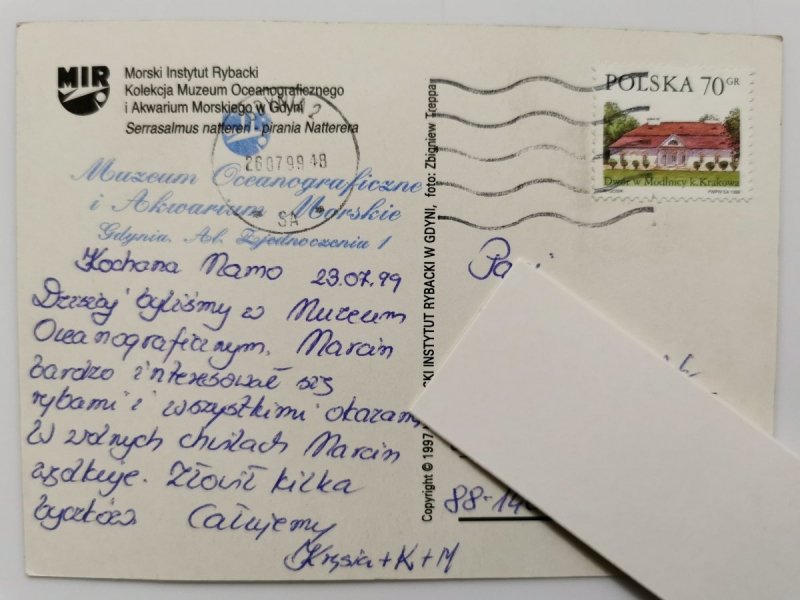 MIR
Morski Instytut Rybacki
Kolekcja Muzeum Oceanograficznego
i Akwarium Morskiego w Gdyni
Serrasalmus nattereri - pirania Natterera
2
26 07 99 -18
SA
Muzeum Oceanograficzne
i Akwarium Morskie
Gdynia, Al. Zjednoczenia 1
Kochana Mamo 23.07.99
Dzisiaj byliśmy w Muzeum
Oceanograficznym. Marcin
bardzo interesował się
rybami i wszystkimi okazami.
W wolnych chwilach Marcin
wędkuje. Złowił kilka
byczków. Całujemy
Krysia + K + M
Copyright © 1997
KI INSTYTUT RYBACKI W GDYNI, foto: Zbigniew Treppa
POLSKA 70 GR
Dwór w Modlnicy k. Krakowa
PWPW SA 1998
Pani
88-14